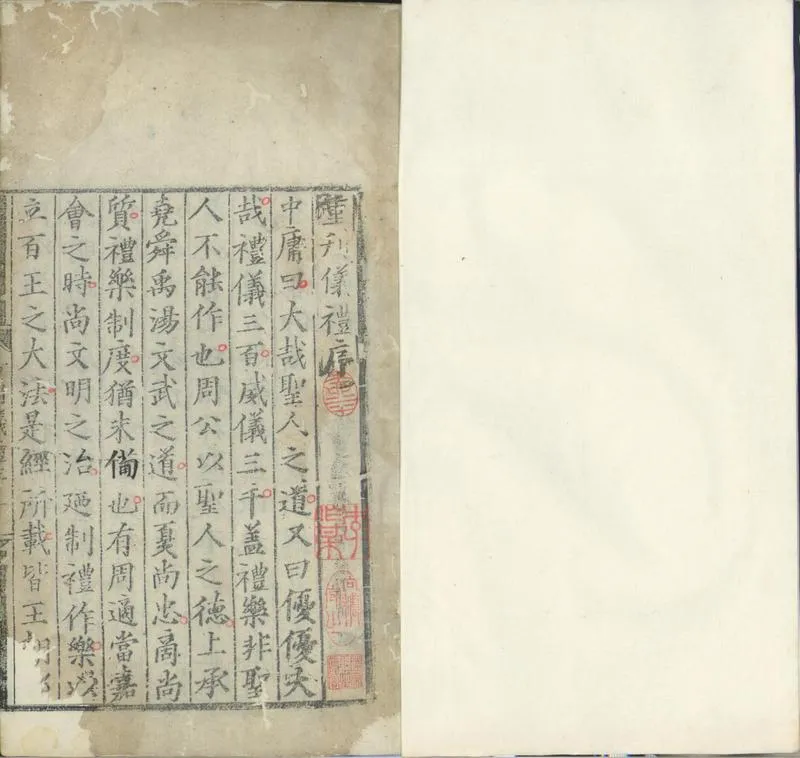 重刊儀禮序
中庸曰大哉聖人之道又曰優優大
哉禮儀三百威儀三千蓋禮樂非聖
人不能作也周公以聖人之德上承
堯舜禹湯文武之道而夏尚忠商尚
質禮樂制度猶未備也有周適當嘉
會之時尚文明之治廼制禮作樂以
立百王之大法是經所載皆王朝